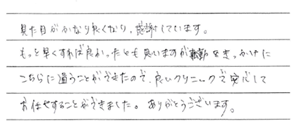 見た目がかなり良くなり、感謝しています。
もっと早くすれば良かったとも思いますが転勤もでき、かけに
こちらに通うことができたので、良いクリニックで安心して
お任せすることができました。ありがとうございます。